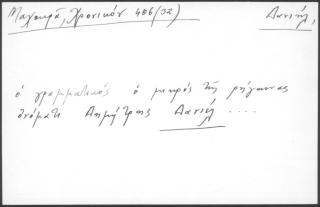 Μαχαιρά, Χρονικόν 406(32) Δανιήλ,
ὁ γραμματικός ὁ μικρός τῆς ρήγαινας
ὀνόματι Δημήτρης Δανιήλ ....